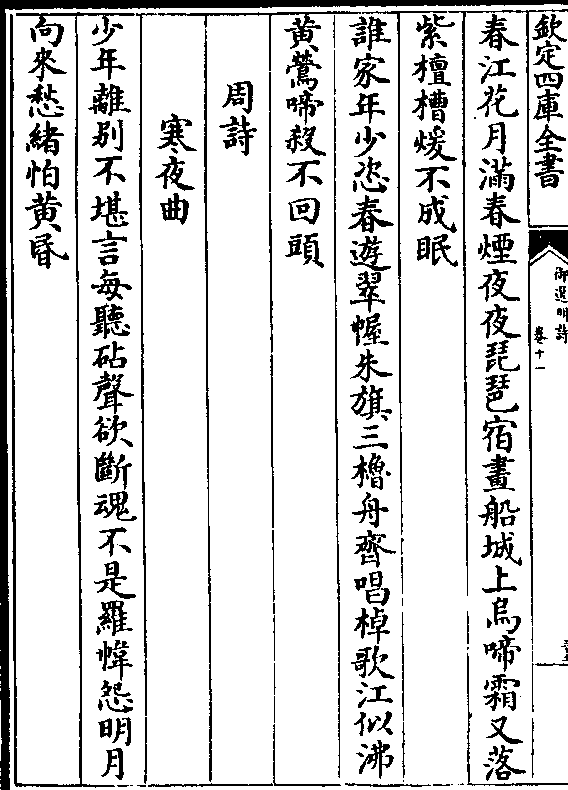 欽定四庫全書
御選明詩
卷十一
春江花月滿春煙夜夜琵琶宿畫船城上烏啼霜又落
紫檀槽煖不成眠
誰家年少恣春遊翠幄朱旗三櫓舟齊唱棹歌江似沸
黃鶯啼殺不回頭
周詩
寒夜曲
少年離別不堪言每聽砧聲欲斷魂不是羅幃怨明月
向來愁緒怕黃昏